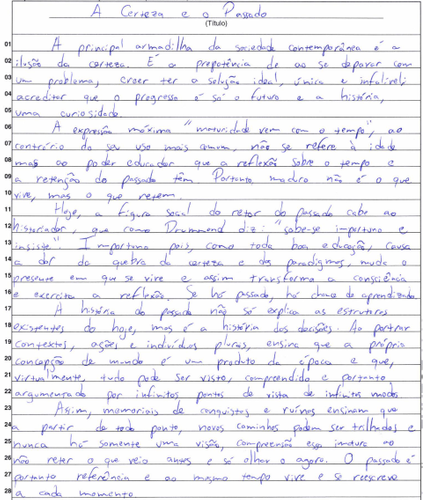 A Certeza e o Passado
(Título)
01 A principal armadilha da sociedade contemporânea é a
02 ilusão da certeza. É a prepotência de ao se deparar com
03 um problema, crer ter a solução ideal, única e infalível;
04 acreditar que o progresso é só o futuro e a história,
05 uma curiosidade.
06 A expressão máxima "maturidade vem com o tempo", ao
07 contrário do seu uso mais comum, não se refere à idade
08 mas ao poder educador que a reflexão sobre o tempo e
09 a retenção do passado têm. Portanto, maduro não é o que
10 vive, mas o que retem.
11 Hoje, a figura social do retor do passado cabe ao
12 historiador, que como Drummond diz: "sabe-se importuno e
13 insiste". Importuna pois, como toda boa educação, causa
14 a dor da quebra da certeza e dos paradigmas, muda o
15 presente em que se vive e assim transforma a consciência
16 e exercita a reflexão. Se há passado, há chance de aprendizado.
17 A história do passado não só explica as estruturas
18 existentes do hoje, mas é a história das decisões. Ao partrar
19 contextos, ações e indivíduos plurais, ensina que a própria
20 concepção de mundo é um produto da época e que,
21 virtualmente, tudo pode ser visto, compreendido e portanto
22 argumentado por infinitos pontos de vista de infinitos modos
23 Asim, memoriais de conquistas e ruínas ensinam que
24 a partir de todo ponto, novos caminhos podem ser trilhados e
25 nunca há somente uma visão, compreensão essa imatura ao
26 não reter o que veio antes e só olhar o agora. O passado é
27 portanto referência e ao mesmo tempo vive e se reescreve
28 a cada momento.